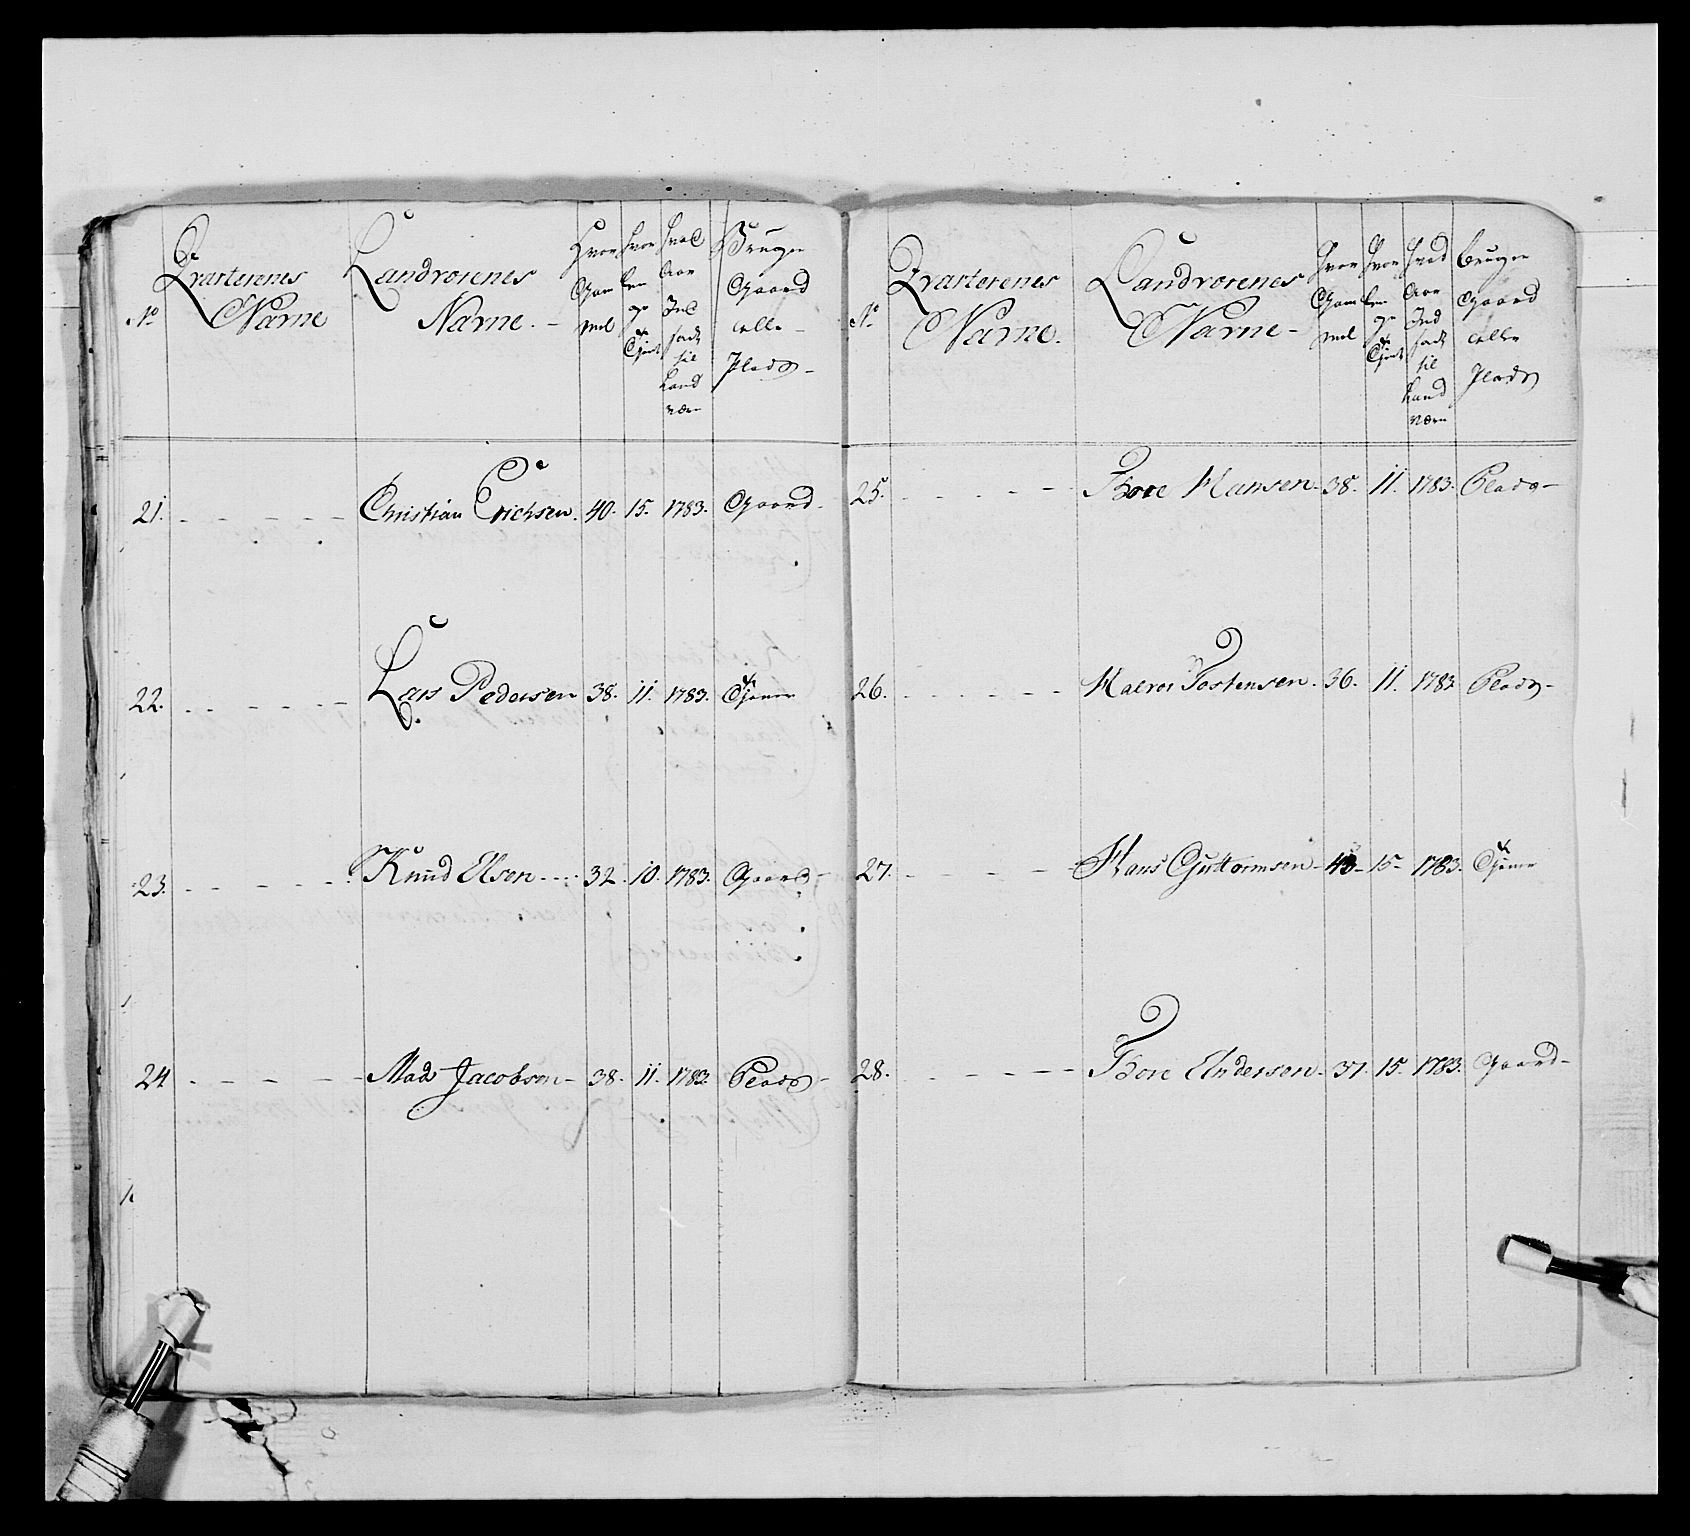 No
Qvarterenes
Navne
Landvorenes
Navne. -
Hvor
Gam
mel
hvor
længe
Tient
Hvad
Aar
Ind
sadt
til
Land
værn
Bruger
Gaard
eller
Plads -
21. Christian Erichsen. 40. 15. 1783. Gaard.
22. Lars Pedersen 38. 11. 1783. Tjener
23. Knud Elsen 32. 10. 1783. Gaard -
24 Mads Jacobsen - 38. 11. 1783. Plads -
No
Qvarterenes
Navne.
Landvorenes
Navne -
Hvor
Gam
mel
Hvor
længe
Tient
Hvad
Aar
Ind
sadt
til
Land
værn
bruger
Gaard
eller
Plads
25. Tore Hansen. 38. 11. 1783. Plads -
26. Halvor Tostensen. 36. 11. 1783 Plads -
27. Hans Guttormsen - 43 - 15 - 1783. Tjener
28. Tore Andersen. 37. 15. 1783. Gaard -